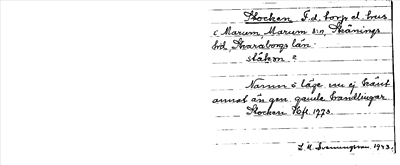 Stocken F.d. torp el. hus
i Marum, Marum sn, Skånings
hd, Skaraborgs län.
stákɔn e
Namn o läge nu ej känt
annat än gen. gamla handlingar.
Stocken Hfl. 1773.
L. M. Svenungsson. 1943.